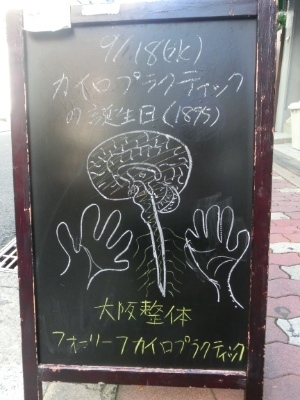 9/18(水)
カイロプラクティック
の誕生日(1895)
大阪整体
フォーリーフカイロプラクティック